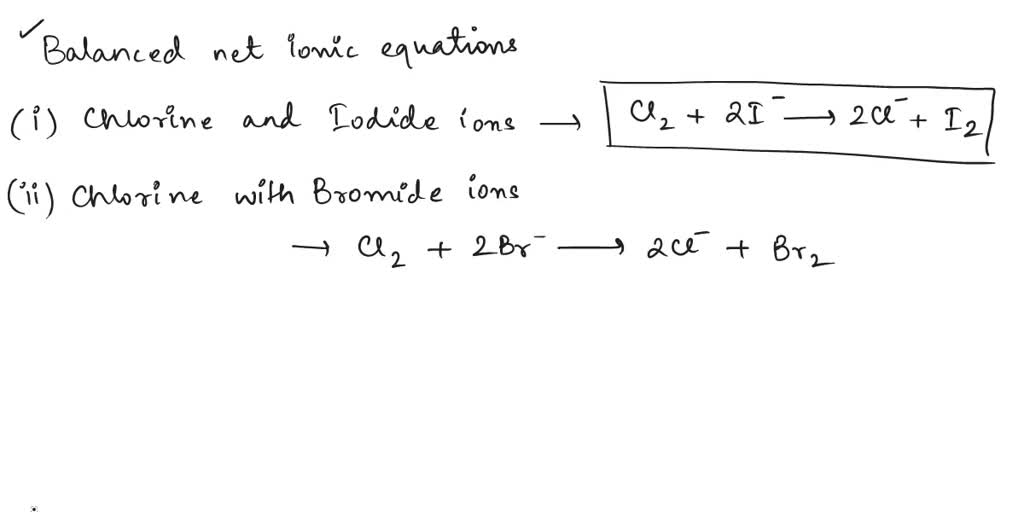 ✓Balanced net ionic equations
(i) Chlorine and Iodide ions → Cl₂ + 2I⁻ → 2Cl⁻ + I₂
(ii) Chlorine with Bromide ions
→ Cl₂ + 2Br⁻ → 2Cl⁻ + Br₂